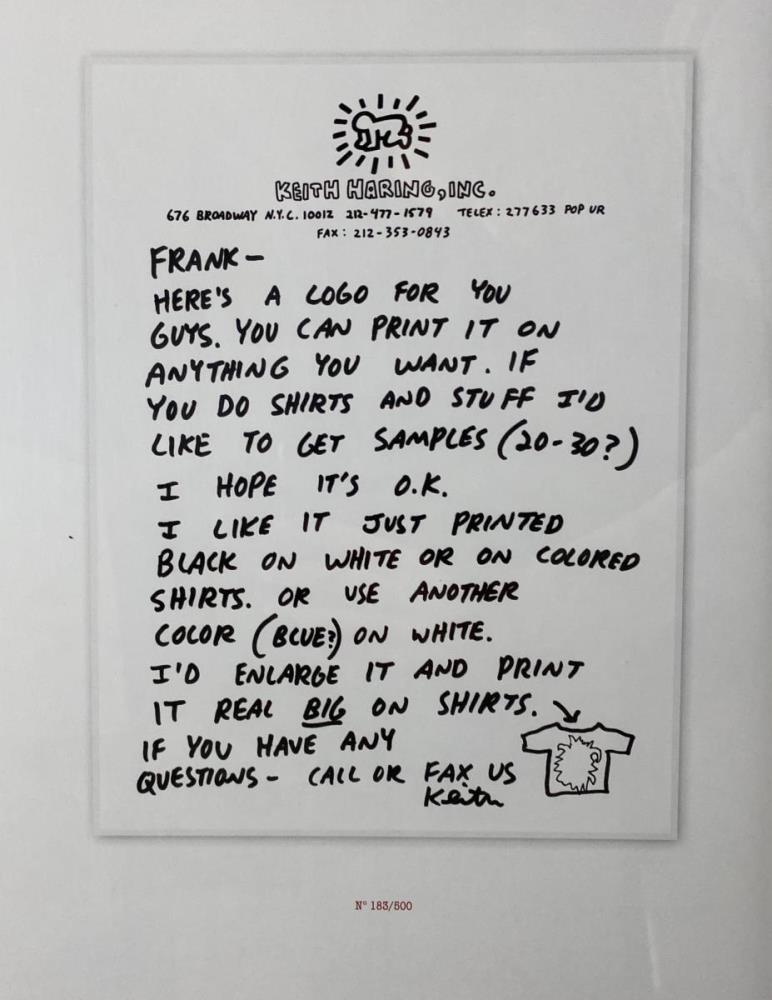 KEITH HARING, INC.
676 BROADWAY N.Y.C. 10012 212-477-1579 TELEX: 277633 POP UR
FAX: 212-353-0843
FRANK —
HERE'S A LOGO FOR YOU
GUYS. YOU CAN PRINT IT ON
ANYTHING YOU WANT. IF
YOU DO SHIRTS AND STUFF I'D
LIKE TO GET SAMPLES (20-30?)
I HOPE IT'S O.K.
I LIKE IT JUST PRINTED
BLACK ON WHITE OR ON COLORED
SHIRTS. OR USE ANOTHER
COLOR (BLUE?) ON WHITE.
I'D ENLARGE IT AND PRINT
IT REAL BIG ON SHIRTS.
IF YOU HAVE ANY
QUESTIONS - CALL OR FAX US
Keith
Nº 183/500